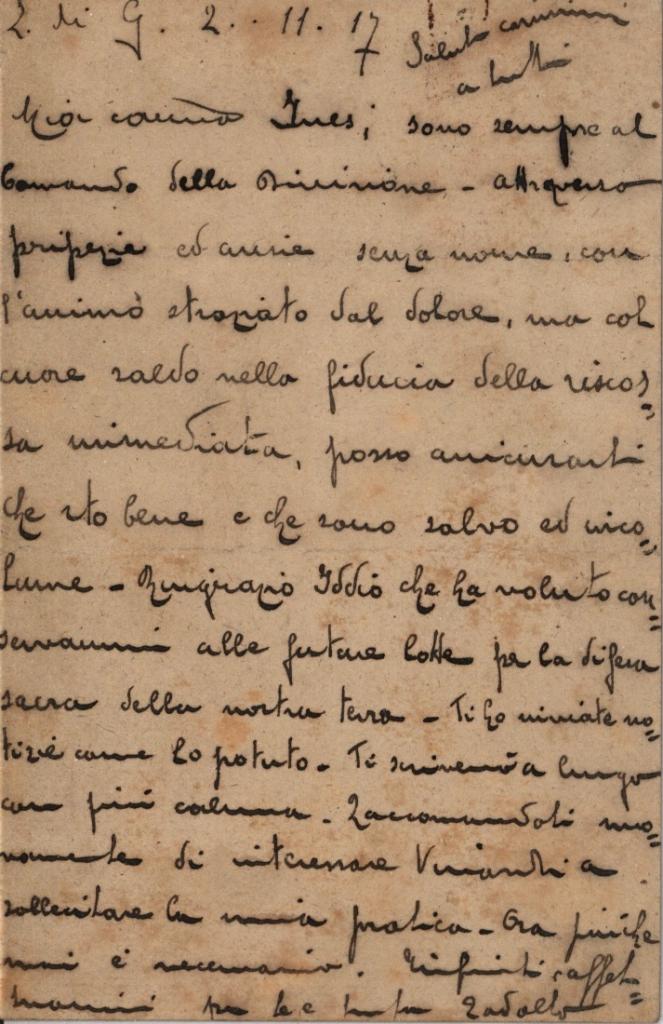 Z. di G. 2. 11. 17
Saluti carissimi
a tutti
Mia carissima Ines, sono sempre al
Comando della Divisione - attraverso
peripezie ed ansie senza nome, con
l'animo straziato dal dolore, ma col
cuore saldo nella fiducia della riscos=
sa immediata, posso assicurarti
che sto bene e che sono salvo ed inco=
lume - Ringrazio Iddio che ha voluto con=
servarmi alle future lotte per la difesa
sacra della nostra terra - Ti ho inviate no=
tizie come ho potuto - Ti scriverò a lungo
con più calma - Raccomandati nuo=
vamente di interessare a
sollecitare la mia pratica - Ora più che
mai è necessario. Infiniti, affet=
tuosissimi per te e tutti Rodolfo